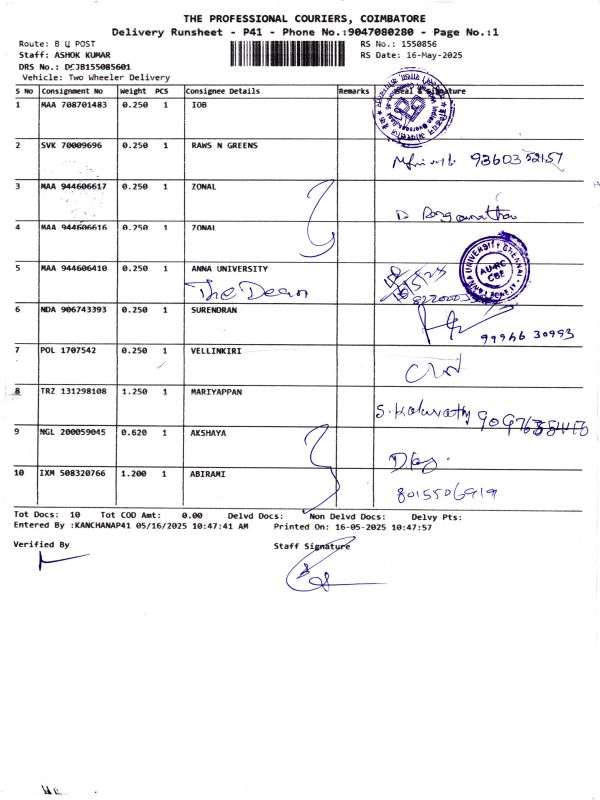 THE PROFESSIONAL COURIERS, COIMBATORE
Delivery Runsheet - P41 - Phone No.:9047080280 - Page No.:1
Route: B U POST
RS No.: 1550856
Staff: ASHOK KUMAR
RS Date: 16-May-2025
DRS No.: DCJB155085601
Vehicle: Two Wheeler Delivery
S No Consignment No Weight PCS Consignee Details Remarks Seal & Signature
1 MAA 708701483 0.250 1 IOB
2 SVK 70009696 0.250 1 RAWS N GREENS
93603 52157
3 MAA 944606617 0.250 1 ZONAL
D Ranganathan
4 MAA 944606616 0.250 1 ZONAL
5 MAA 944606410 0.250 1 ANNA UNIVERSITY
The Dean
ANNA UNIVERSITY CHENNAI
AURC
CBE
6 NDA 906743393 0.250 1 SURENDRAN
99946 30993
7 POL 1707542 0.250 1 VELLINKIRI
8 TRZ 131298108 1.250 1 MARIYAPPAN
9 NGL 200059045 0.620 1 AKSHAYA
10 IXM 508320766 1.200 1 ABIRAMI
8015506919
Tot Docs: 10 Tot COD Amt: 0.00 Delvd Docs: Non Delvd Docs: Delvy Pts:
Entered By :KANCHANAP41 05/16/2025 10:47:41 AM Printed On: 16-05-2025 10:47:57
Verified By
Staff Signature